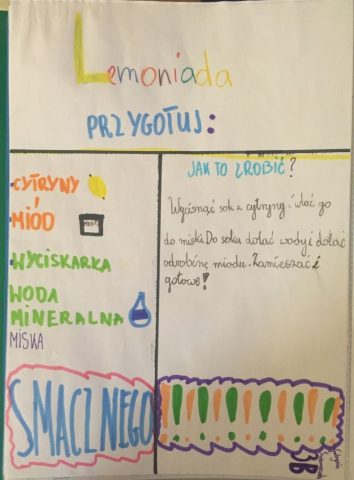 Lemoniada
PRZYGOTUJ:
• CYTRYNY
• MIÓD
MIÓD
• WYCISKARKA
WODA
MINERALNA
MISKA
JAK TO ZROBIĆ?
Wycisnąć sok z cytryny i wlać go
do miski. Do soku dolać wody i dolać
odrobinę miodu. Zamieszać i
gotowe!
SMACZNEGO
!!!!!!!!!!!!
3B